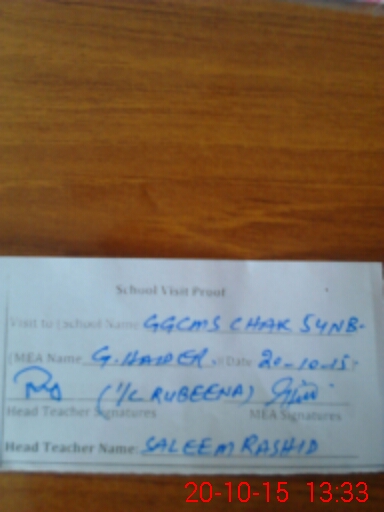 School Visit Proof
Visit to (School Name GGCMS CHAK 54NB.
(MEA Name G. HAIDER. Date 20-10-15
(I/C RUBEENA)
Head Teacher Signatures MEA Signatures
Head Teacher Name: SALEEM RASHID
20-10-15 13:33